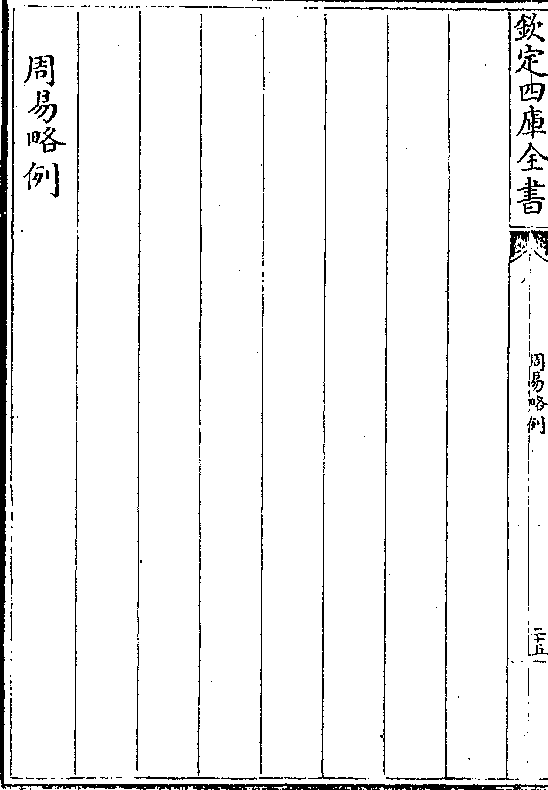 欽定四庫全書
周易略例
二十五
周易略例